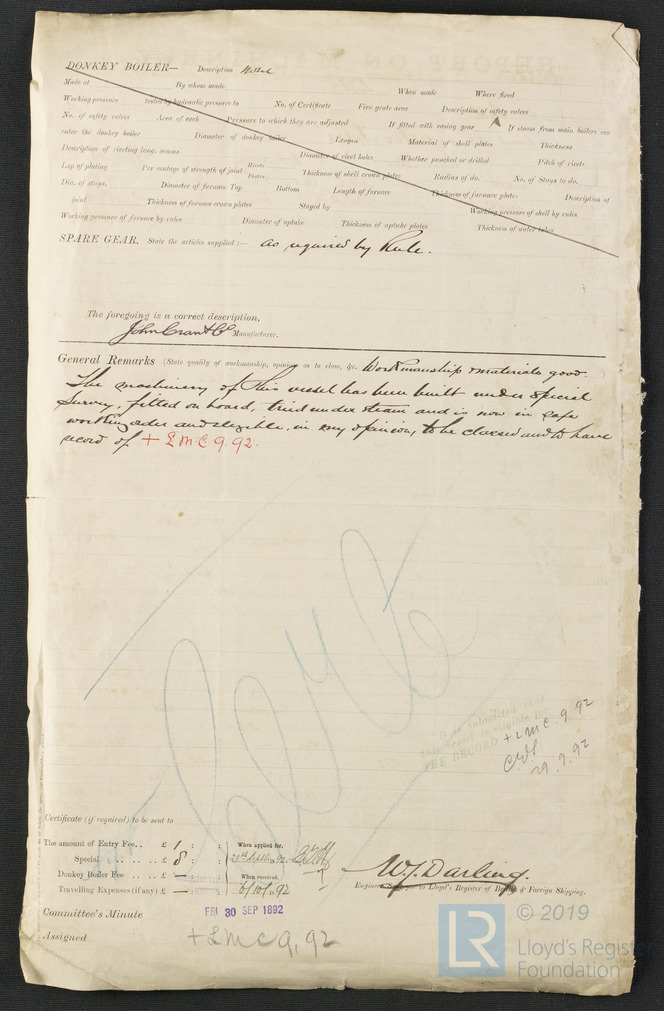 DONKEY BOILER— Description
Made at By whom made When made Where fixed
Working pressure tested by hydraulic pressure to No. of Certificate Fire grate area Description of safety valves
No. of safety valves Area of each Pressure to which they are adjusted If fitted with easing gear If steam from main boilers can
enter the donkey boiler Diameter of donkey boiler Length Material of shell plates Thickness
Description of riveting long. seams Diameter of rivet holes Whether punched or drilled Pitch of rivets
Lap of plating Per centage of strength of joint Rivets Plates Thickness of shell crown plates Radius of do. No. of Stays to do.
Dia. of stays. Diameter of furnace Top Bottom Length of furnace Thickness of furnace plates Description of
joint Thickness of furnace crown plates Stayed by Working pressure of shell by rules
Working pressure of furnace by rules Diameter of uptake Thickness of uptake plates Thickness of water tubes
SPARE GEAR. State the articles supplied:— as required by Rule.
The foregoing is a correct description,
Manufacturer.
General Remarks (State quality of workmanship, opinions as to class, &c. Workmanship & materials good
The machinery of this vessel has been built under Special
Survey, fitted on board, tried under steam and is now in safe
working order and eligible, in my opinion, to be classed and to have
record of + LMC 9.92.
It is submitted that
this vessel is eligible for
THE RECORD + LMC 9.92
29.9.92
Certificate (if required) to be sent to
The amount of Entry Fee.. £ 1 : : When applied for.
Special .. .. .. £ 8 : :
Donkey Boiler Fee .. .. £ — : : When received.
Travelling Expenses (if any) £ — : : 6/10/92
W. J. Darling.
Engineer Surveyor to Lloyd's Register of British & Foreign Shipping.
Committee's Minute FRI 30 SEP 1892
Assigned + LMC 9,92
LR © 2019
Lloyd's Register
Foundation